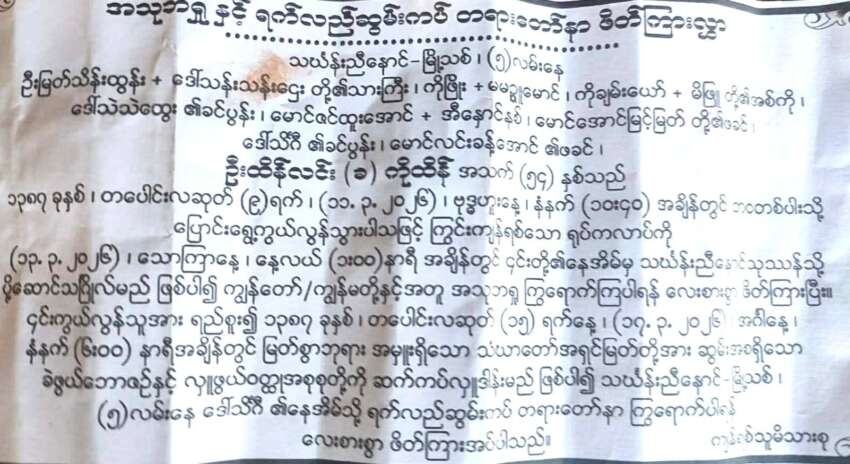 အသုဘရှု နှင့် ရက်လည်ဆွမ်းကပ် တရားတော်နာ ဖိတ်ကြားလွှာ
သင်္ဃန်းညီနောင်-မြို့သစ်၊ (၅)လမ်းနေ
ဦးမြတ်သိန်းထွန်း + ဒေါ်သန်းသန်းဌေး တို့၏သားကြီး၊ ကိုဖြိုး + မမဥူမောင်၊ ကိုချမ်းယော် + မိဖြူ တို့၏အစ်ကို၊
ဒေါ်သဲသဲထွေး ၏ခင်ပွန်း၊ မောင်ဇင်ထူးအောင် + အိနှောင်နှစ်၊ မောင်အောင်မြင့်မြတ် တို့၏ဖခင်၊
ဒေါ်သိင်္ဂီ ၏ခင်ပွန်း၊ မောင်လင်းခန့်အောင် ၏ဖခင်၊
ဦးထိန်လင်း (ခ) ကိုထိန် အသက် (၅၄) နှစ်သည်
၁၃၈၇ ခုနှစ်၊ တပေါင်းလဆုတ် (၉)ရက်၊ (၁၁. ၃. ၂၀၂၆)၊ ဗုဒ္ဓဟူးနေ့၊ နံနက် (၁၀း၄၀) အချိန်တွင် ဘဝတစ်ပါးသို့
ပြောင်းရွှေ့ကွယ်လွန်သွားပါသဖြင့် ကြွင်းကျန်ရစ်သော ရုပ်ကလာပ်ကို
(၁၃. ၃. ၂၀၂၆)၊ သောကြာနေ့၊ နေ့လယ် (၁း၀၀)နာရီ အချိန်တွင် ၎င်းတို့၏နေအိမ်မှ သင်္ဃန်းညီနောင်သုဿန်သို့
ပို့ဆောင်သင်္ဂြိုလ်မည် ဖြစ်ပါ၍ ကျွန်တော်/ကျွန်မတို့နှင့်အတူ အသုဘရှု ကြွရောက်ကြပါရန် လေးစားစွာ ဖိတ်ကြားပြီး။
၎င်းကွယ်လွန်သူအား ရည်စူး၍ ၁၃၈၇ ခုနှစ်၊ တပေါင်းလဆုတ် (၁၅) ရက်နေ့၊ (၁၇. ၃. ၂၀၂၆)၊ အင်္ဂါနေ့၊
နံနက် (၆း၀၀) နာရီအချိန်တွင် မြတ်စွာဘုရား အမှူးရှိသော သံဃာတော်အရှင်မြတ်တို့အား ဆွမ်းအစရှိသော
ခဲဖွယ်ဘောဇဉ်နှင့် လှူဖွယ်ဝတ္ထုအစုစုတို့ကို ဆက်ကပ်လှူဒါန်းမည် ဖြစ်ပါ၍ သင်္ဃန်းညီနောင်-မြို့သစ်၊
(၅)လမ်းနေ ဒေါ်သိင်္ဂီ ၏နေအိမ်သို့ ရက်လည်ဆွမ်းကပ် တရားတော်နာ ကြွရောက်ပါရန်
လေးစားစွာ ဖိတ်ကြားအပ်ပါသည်။
ကျန်ရစ်သူမိသားစု